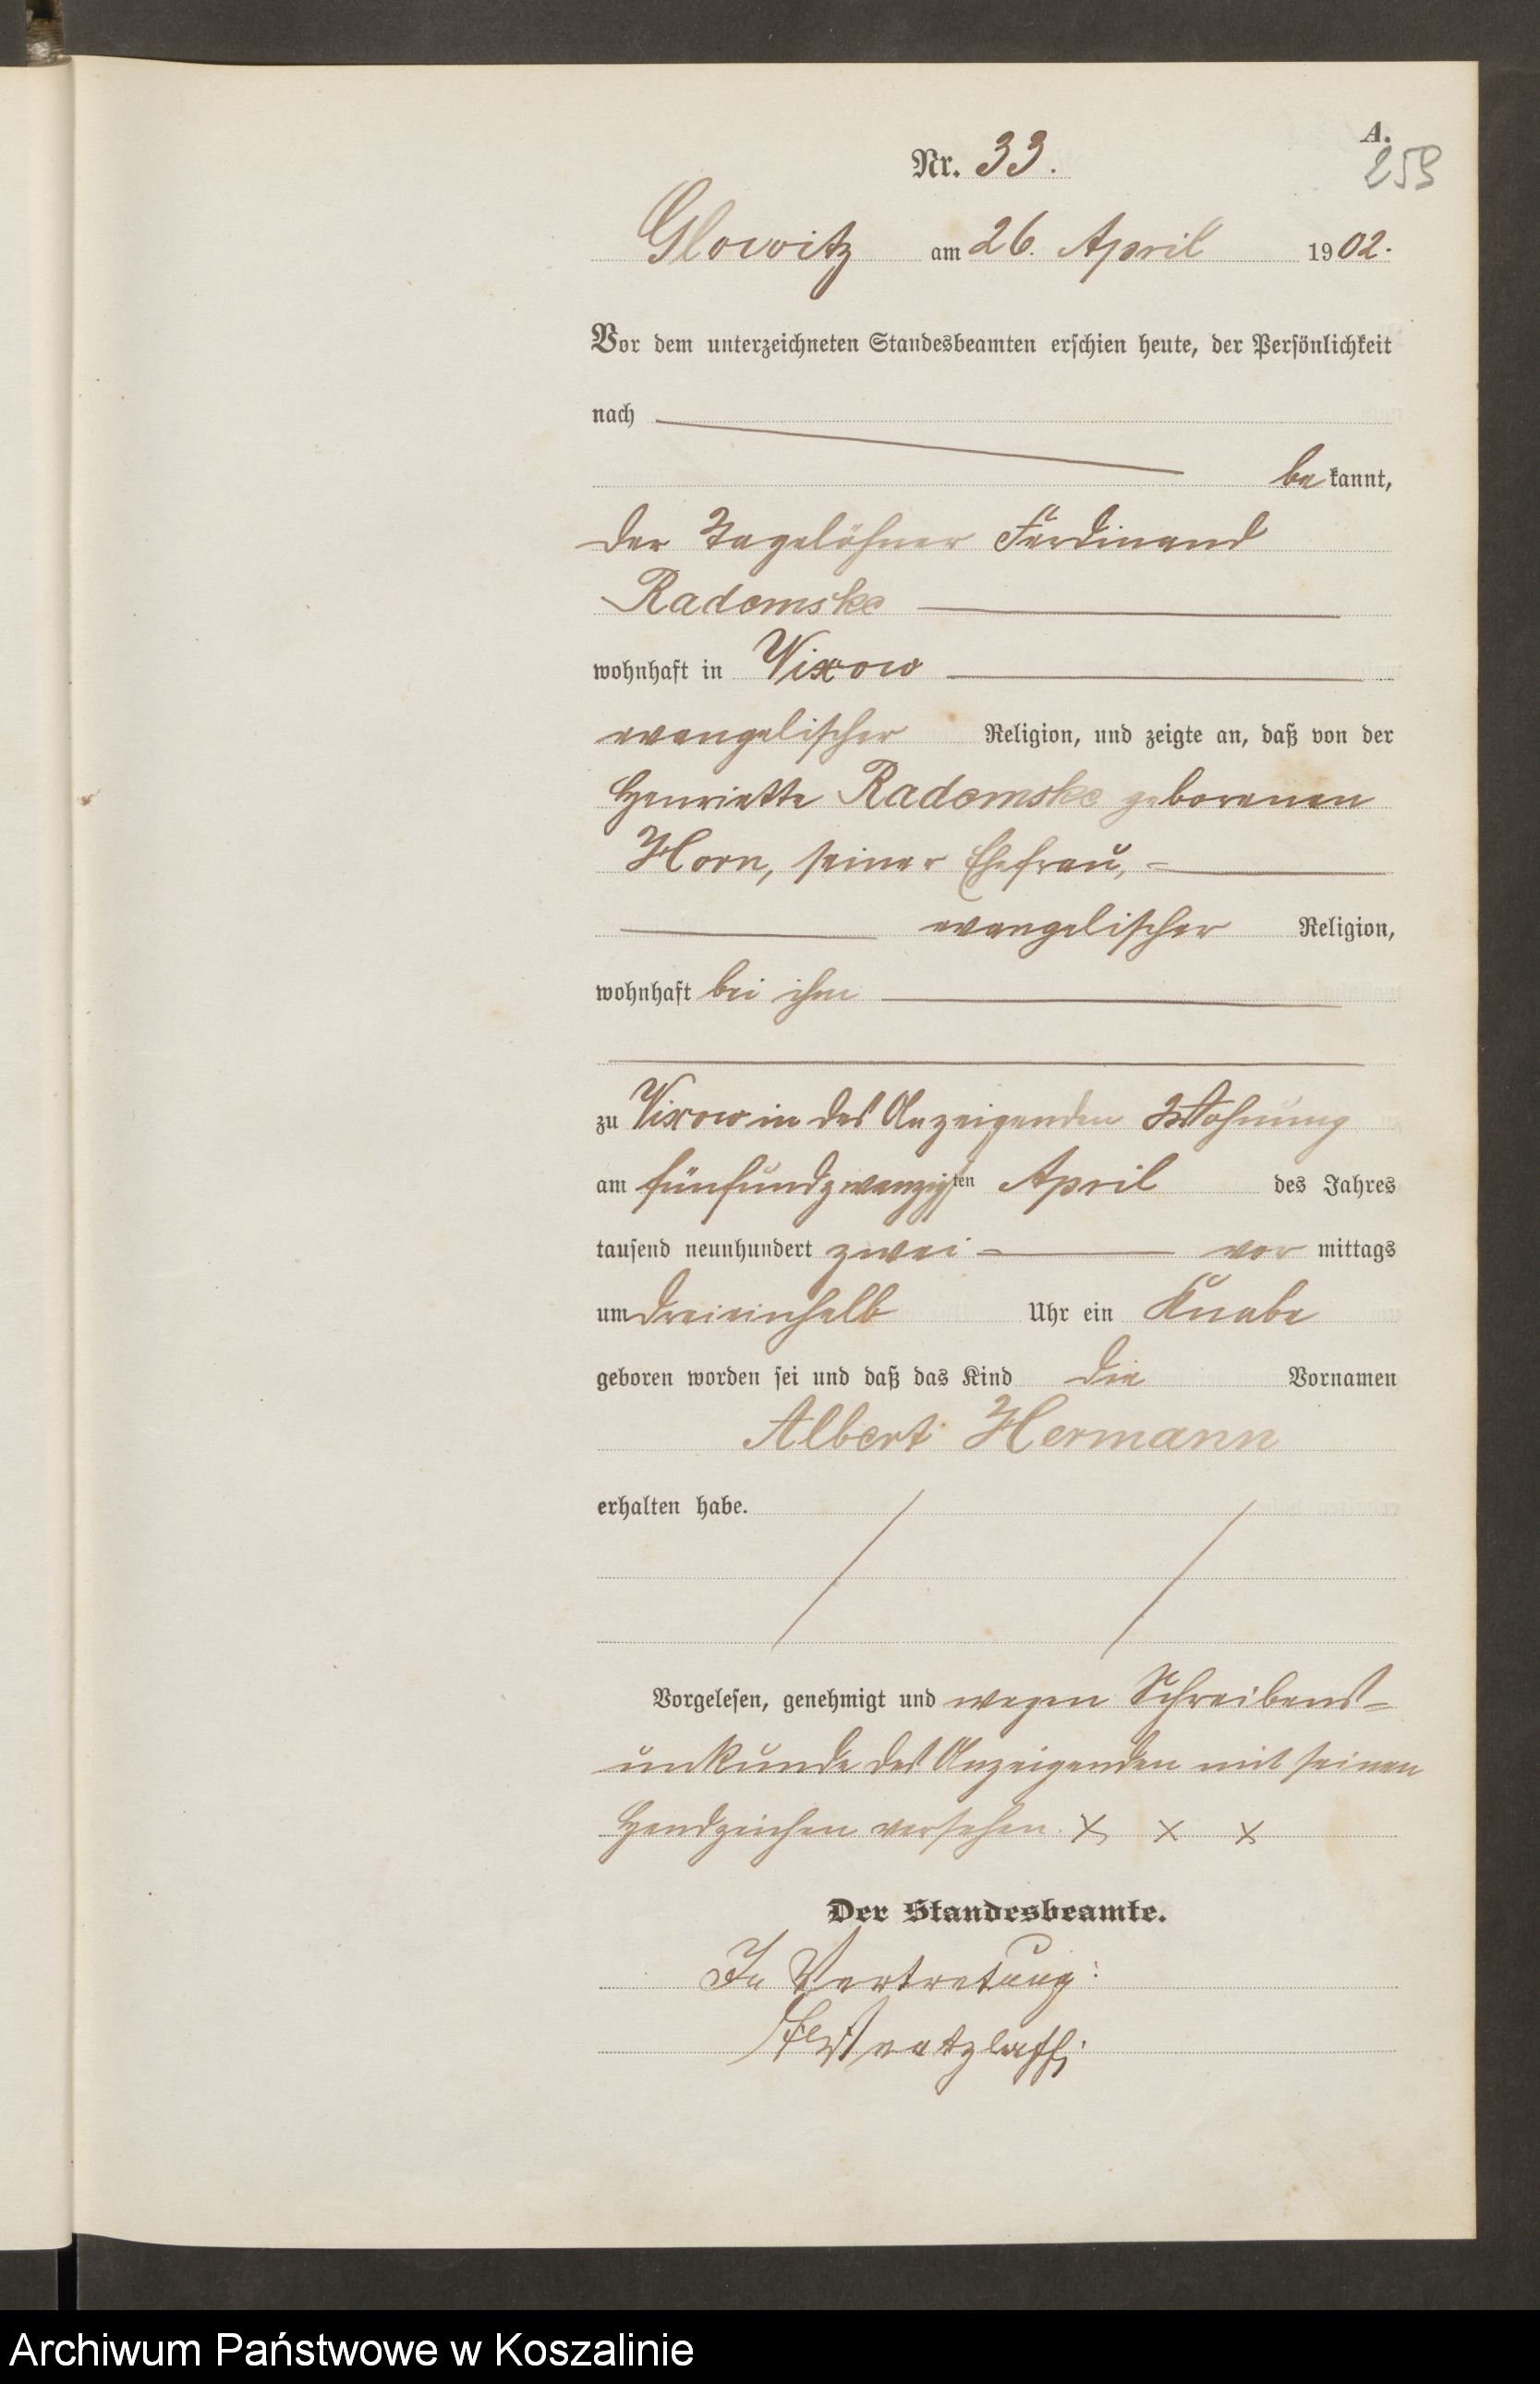 A.
259
Nr. 33.
Glowitz am 26. April 1902.
Vor dem unterzeichneten Standesbeamten erschien heute, der Persönlichkeit
nach
be kannt,
der Tagelöhner Ferdinand
Radomske
wohnhaft in Vixow
evangelischer Religion, und zeigte an, daß von der
Henriette Radomske geborenen
Horn, seiner Ehefrau,
evangelischer Religion,
wohnhaft bei ihm
zu Vixow in des Anzeigenden Wohnung
am fünfundzwanzigsten April des Jahres
tausend neunhundert zwei vor mittags
um dreieinhalb Uhr ein Knabe
geboren worden sei und daß das Kind die Vornamen
Albert Hermann
erhalten habe.
Vorgelesen, genehmigt und wegen Schreibens-
unkunde des Anzeigenden mit seinen
Handzeichen versehen. X X X
Der Standesbeamte.
In Vertretung:
Archiwum Państwowe w Koszalinie